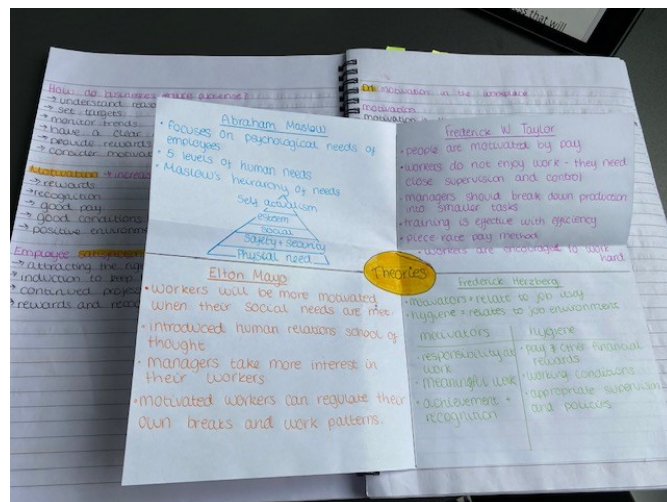 s that will
How do businesses
→ understand
→ set targets
→ monitor trends
→ have a clear
→ provide rewards
→ consider
Motivation →
→ rewards
→ recognition
→ good pay
→ good conditions
→ positive
Employee
→ attracting the
→ induction to keep
→ continued
→ rewards and
motivation in the workplace
motivation
Abraham Maslow
• Focuses on psychological needs of
employees
• 5 levels of human needs
• Maslow's heirarchy of needs
Self
esteem
social
Safety + security
Physical need
Frederick W Taylor
• people are motivated by pay
• workers do not enjoy work - they need
close supervision and control
• managers should break down production
into smaller tasks
• training is effective with efficiency
• piece rate pay method
- workers are encouraged to work
hard
Theories
Elton Mayo
• workers will be more motivated
when their social needs are met.
• introduced human relations school of
thought
• managers take more interest in
their workers
• motivated workers can regulate their
own breaks and work patterns.
Frederick Herzberg
• motivators = relate to job
• hygiene = relates to job environment
motivators
• responsibility at
work
• meaningful work
• achievement +
recognition
hygiene
• pay & other financial
rewards
• working conditions
• appropriate supervision
and policies